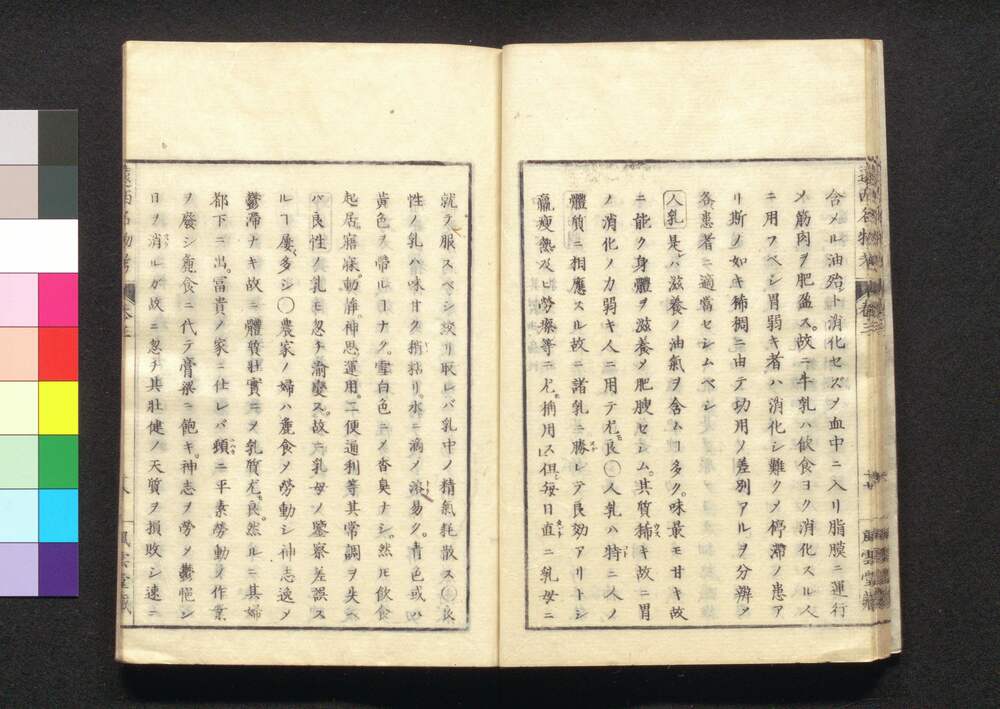 含メル油殆ト消化セズメ血中ニ入リ脂膜ニ運行
メ筋肉ヲ肥盈ス。故ニ牛乳ハ飲食ヨク消化スル人
ニ用フベシ胃弱キ者ハ消化シ難クメ停滞ノ患ア
リ斯ノ如キ稀稠ニ由テ功用ノ差別アルヲ分辨メ
各患者ニ適當セシムベシ
人乳是レハ滋養ノ油氣ヲ含ムヿ多ク。味最モ甘キ故
ニ能ク身體ヲ滋養メ肥腴セシム。其質稀キ故ニ胃
ノ消化ノ力弱キ人ニ用テ尤モ良○人乳ハ特ニ人ノ
體質ニ相應スル故ニ諸乳ニ勝レテ良効アリトシ
羸瘦熱及ヒ勞瘵等ニ尤モ稱用ス但シ每日直ニ乳母ニ
就テ服スベシ絞リ取レバ乳中ノ精氣耗散ス○良
性ノ乳ハ味甘ク稍粘リ。水ニ滴メ溶易ク。青色或ハ
黄色ヲ帶ルヿナク。雪白色ニメ香臭ナシ。然ルニ飲食
起居。寤寐。動靜。神思。運用。二便通利等其常調ヲ失ヘ
バ良性ノ乳モ忽チ渝變ス。故ニ乳母ノ鑒察差誤ス
ルヿ屡多シ○農家ノ婦ハ麁食メ勞動シ神志逸メ
鬱滯ナキ故ニ體質壯實ニメ乳質尤モ良。然ルニ其婦
都下ニ出。富貴ノ家ニ仕レバ頓ニ平素勞動ノ作業
ヲ廢シ麁食ニ代テ膏粱ニ飽キ。神志ヲ勞メ鬱悒シ
日ヲ消ルガ故ニ忽チ其壯健ノ天質ヲ損敗シ速ニ